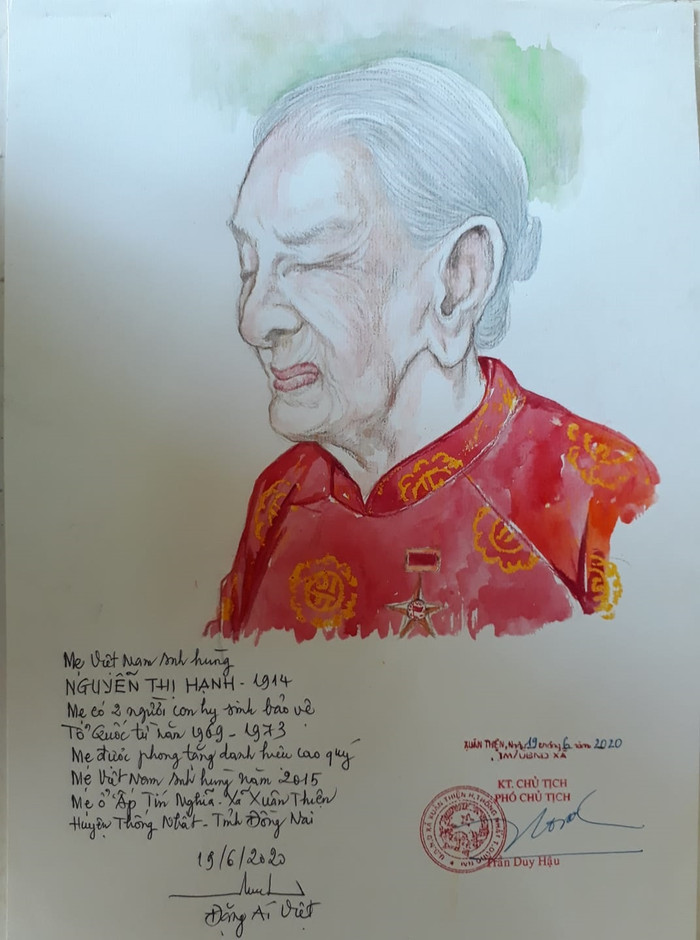 Mẹ Việt Nam anh hùng
NGUYỄN THỊ HẠNH - 1914
Mẹ có 2 người con hy sinh bảo vệ
Tổ Quốc từ năm 1969 - 1973
Mẹ được phong tặng danh hiệu cao quý
Mẹ Việt Nam anh hùng năm 2015
Mẹ ở Ấp Tín Nghĩa - Xã Xuân Thiện
Huyện Thống Nhất - Tỉnh Đồng Nai
19/6/2020
Đặng Ái Việt
XUÂN THIỆN, Ngày 19 tháng 6 năm 2020
TM/UBND XÃ
KT. CHỦ TỊCH
PHÓ CHỦ TỊCH
U.B.N.D XÃ XUÂN THIỆN H.THỐNG NHẤT T.ĐỒNG NAI
Trần Duy Hậu